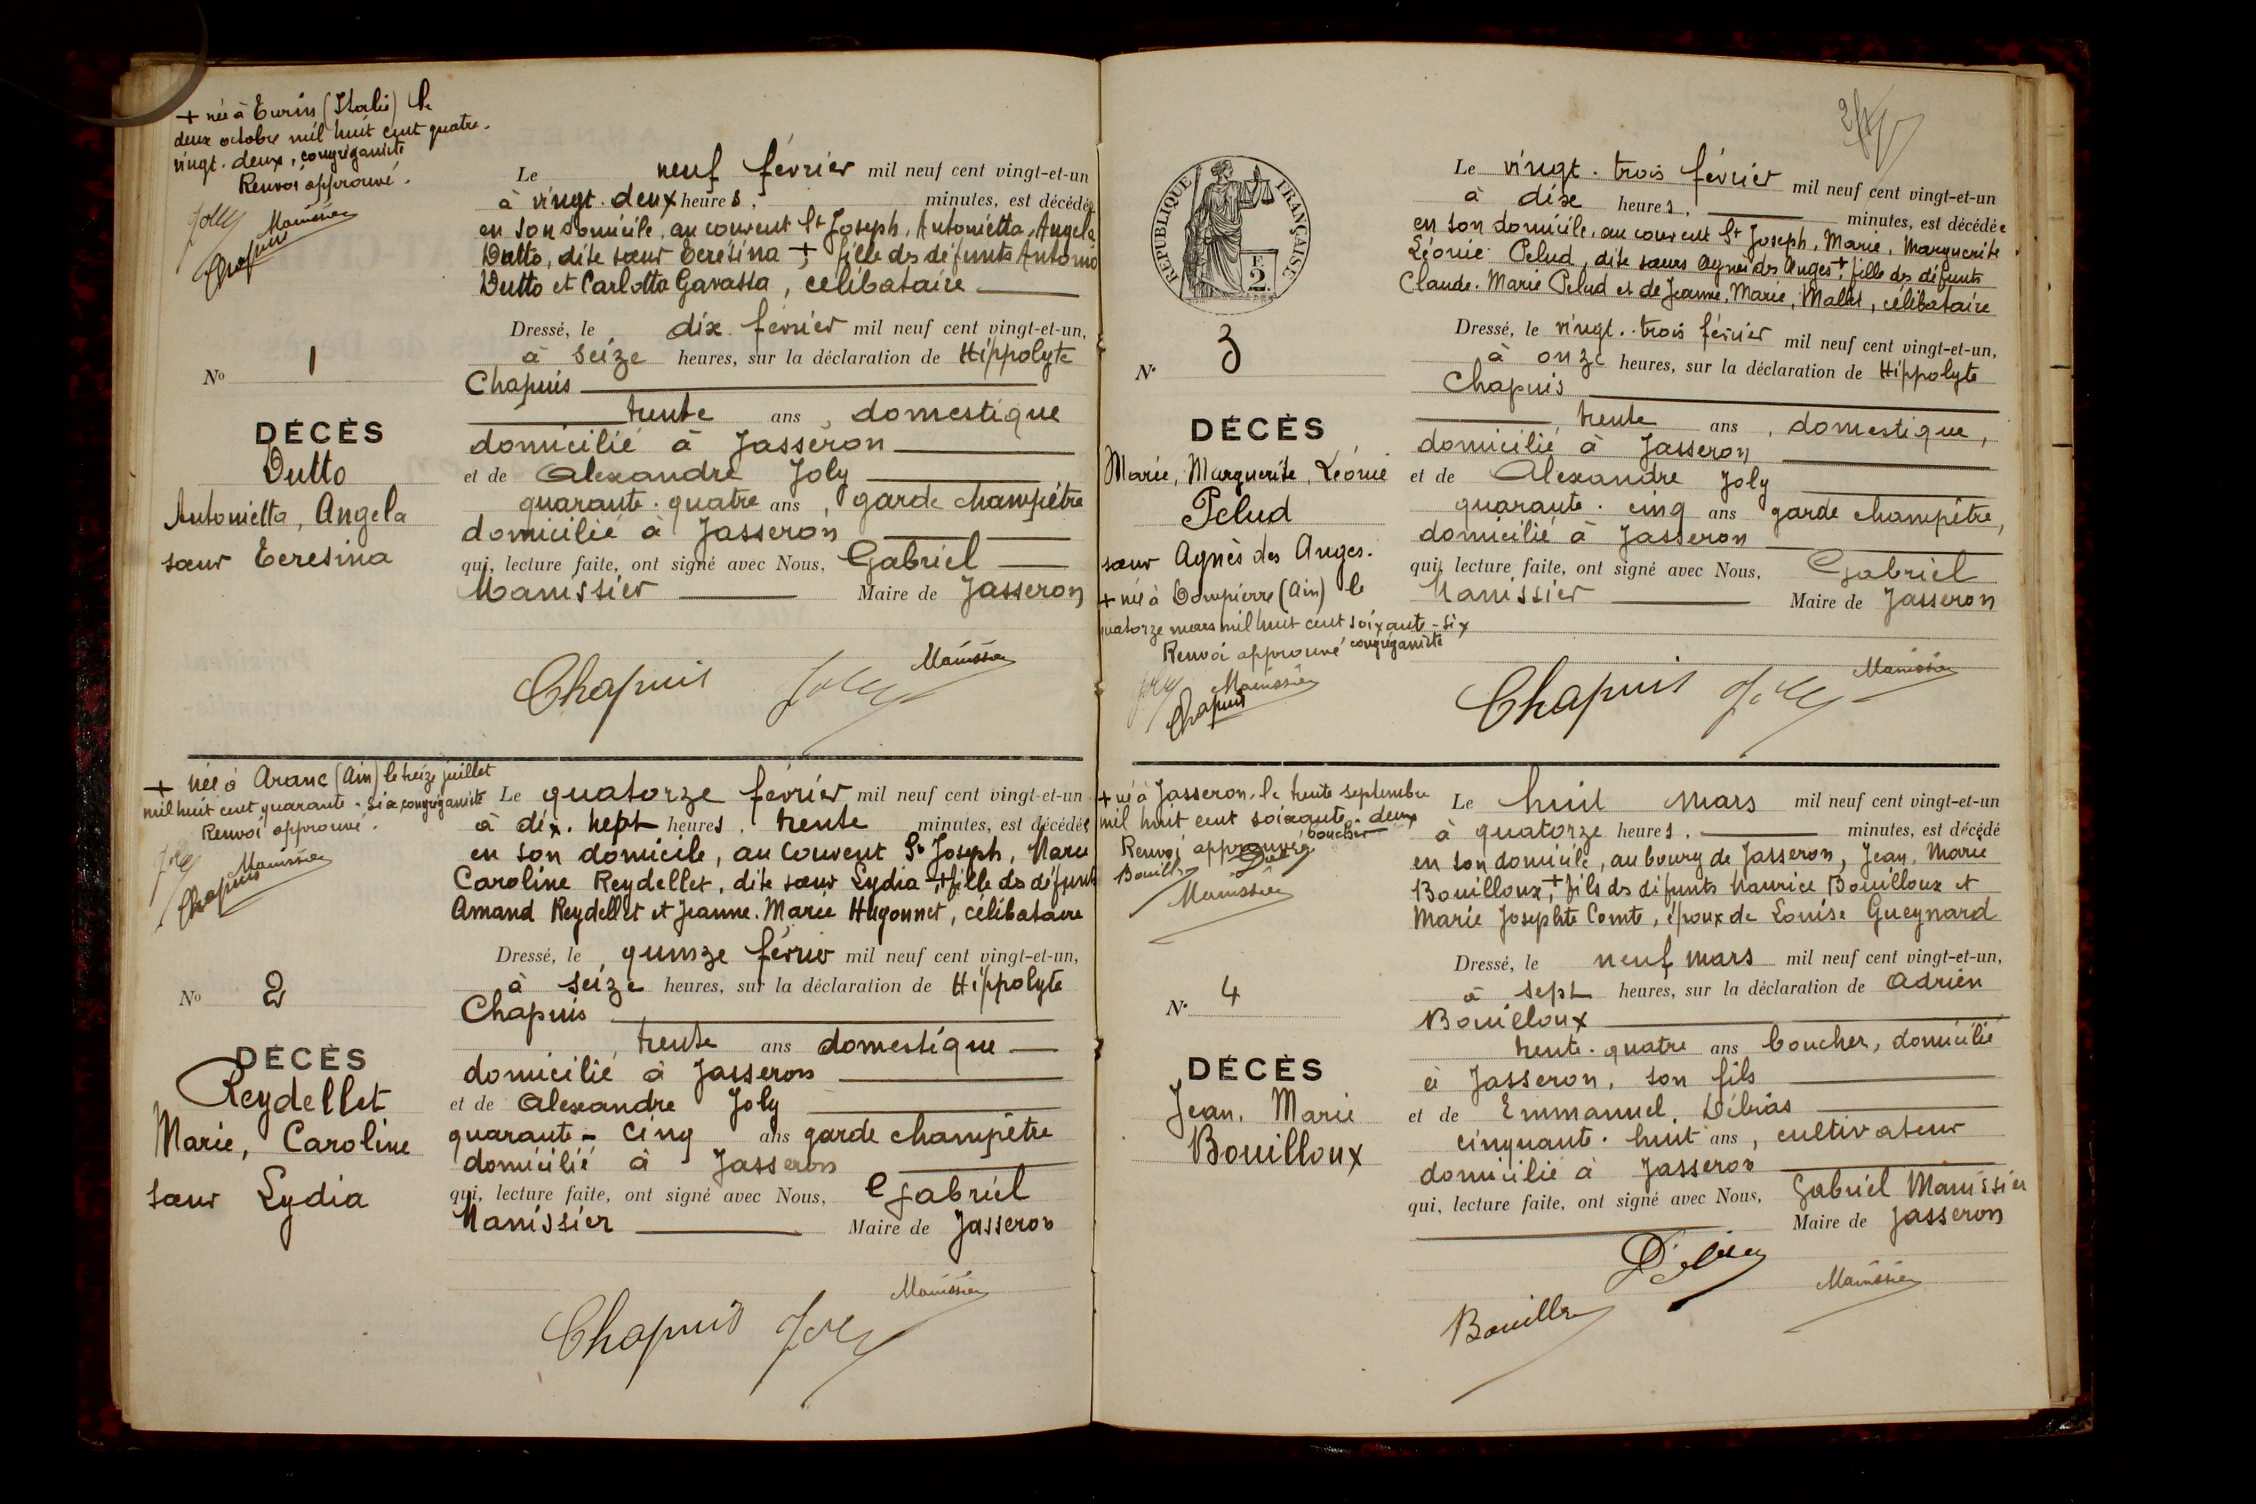 + née à Turin (Italie) le
deux octobre mil huit cent quatre.
vingt. deux, congréganiste
Renvoi approuvé.
Joly Manissier
Chapuis
Le neuf février mil neuf cent vingt-et-un
à vingt. deux heures, minutes, est décédée
en son domicile, au couvent St Joseph, Antonietta, Angela
Dutto, dite sœur Teresina +, fille des défunts Antonio
Dutto et Carlotta Gavassa, célibataire
Dressé, le dix février mil neuf cent vingt-et-un,
à seize heures, sur la déclaration de Hippolyte
Chapuis
trente ans, domestique
domicilié à Jasseron
et de Alexandre Joly
quarante. quatre ans, garde champêtre
domicilié à Jasseron
qui, lecture faite, ont signé avec Nous, Gabriel
Manissier Maire de Jasseron
Chapuis Joly Manissier
No 1
DÉCÈS
Dutto
Antonietta, Angela
sœur Teresina
+ née à Aranc (Ain) le treize juillet
mil huit cent quarante. six, congréganiste
Renvoi approuvé.
Joly Manissier
Chapuis
Le quatorze février mil neuf cent vingt-et-un
à dix. sept heures, trente minutes, est décédée
en son domicile, au Couvent St Joseph, Marie
Caroline Reydellet, dite sœur Lydia +, fille des défunts
Amand Reydellet et Jeanne. Marie Hugonnet, célibataire
Dressé, le quinze février mil neuf cent vingt-et-un,
à seize heures, sur la déclaration de Hippolyte
Chapuis
trente ans domestique
domicilié à Jasseron
et de Alexandre Joly
quarante - cinq ans garde champêtre
domicilié à Jasseron
qui, lecture faite, ont signé avec Nous, Gabriel
Manissier Maire de Jasseron
Chapuis Joly Manissier
No 2
DÉCÈS
Reydellet
Marie, Caroline
sœur Lydia
RÉPUBLIQUE FRANÇAISE
F.
2.
Le vingt. trois février mil neuf cent vingt-et-un
à dix heures, minutes, est décédée
en son domicile, au couvent St Joseph, Marie, Marguerite
Léonie Pelud, dite sœur Agnès des Anges +, fille des défunts
Claude. Marie Pelud et de Jeanne, Marie, Mallet, célibataire
Dressé, le vingt. trois février mil neuf cent vingt-et-un,
à onze heures, sur la déclaration de Hippolyte
Chapuis
trente ans, domestique,
domicilié à Jasseron
et de Alexandre Joly
quarante. cinq ans garde champêtre,
domicilié à Jasseron
qui, lecture faite, ont signé avec Nous, Gabriel
Manissier Maire de Jasseron
Chapuis Joly Manissier
No 3
DÉCÈS
Marie, Marguerite, Léonie
Pelud
sœur Agnès des Anges.
+ née à Dompierre (Ain) le
quatorze mars mil huit cent soixante - six
Renvoi approuvé congréganiste
Joly Manissier
Chapuis
+ né à Jasseron, le trente septembre
mil huit cent soixante. deux
Renvoi approuvé, boucher
Manissier
Le huit mars mil neuf cent vingt-et-un
à quatorze heures, minutes, est décédé
en son domicile, au bourg de Jasseron, Jean, Marie
Bouilloux, + fils des défunts Maurice Bouilloux et
Marie Josephte Comte, époux de Louise Gueynard
Dressé, le neuf mars mil neuf cent vingt-et-un,
à sept heures, sur la déclaration de Adrien
Bouilloux
trente. quatre ans boucher, domicilié
à Jasseron, son fils
et de Emmanuel
cinquante. huit ans, cultivateur
domicilié à Jasseron
qui, lecture faite, ont signé avec Nous, Gabriel Manissier
Maire de Jasseron
Manissier
No 4
DÉCÈS
Jean, Marie
Bouilloux